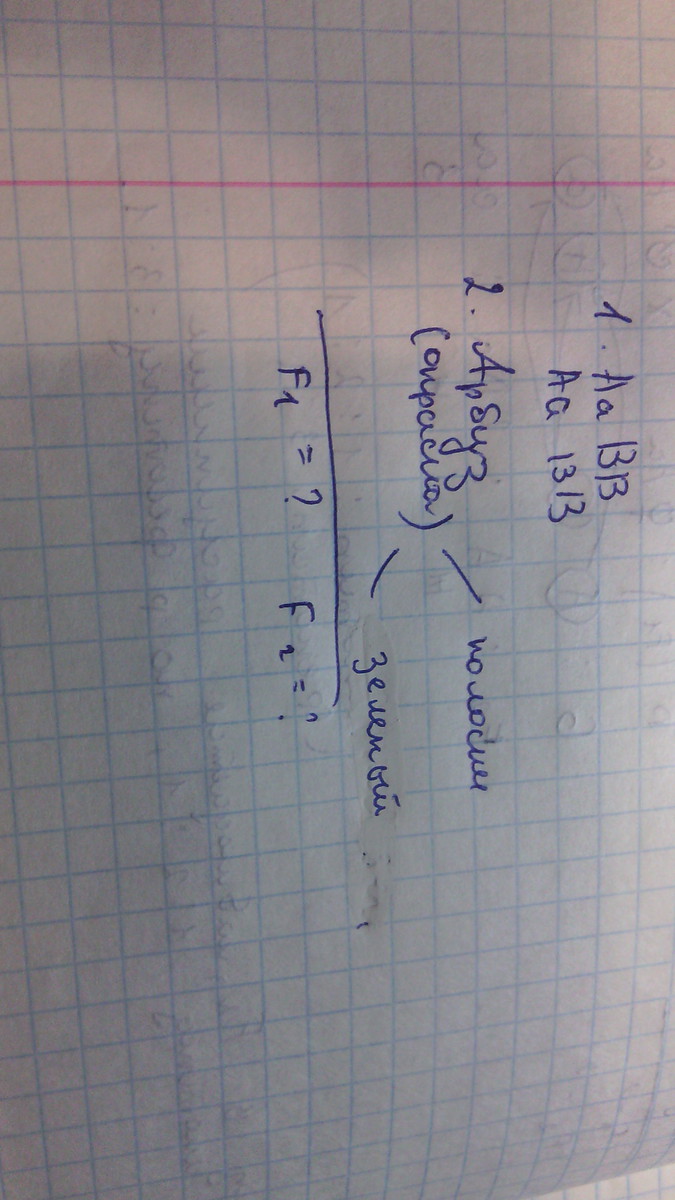 1. Aa BB
Aa BB
2. Арбуз
(окраска)
полосы
зеленый
F1 = ? F2 = ?